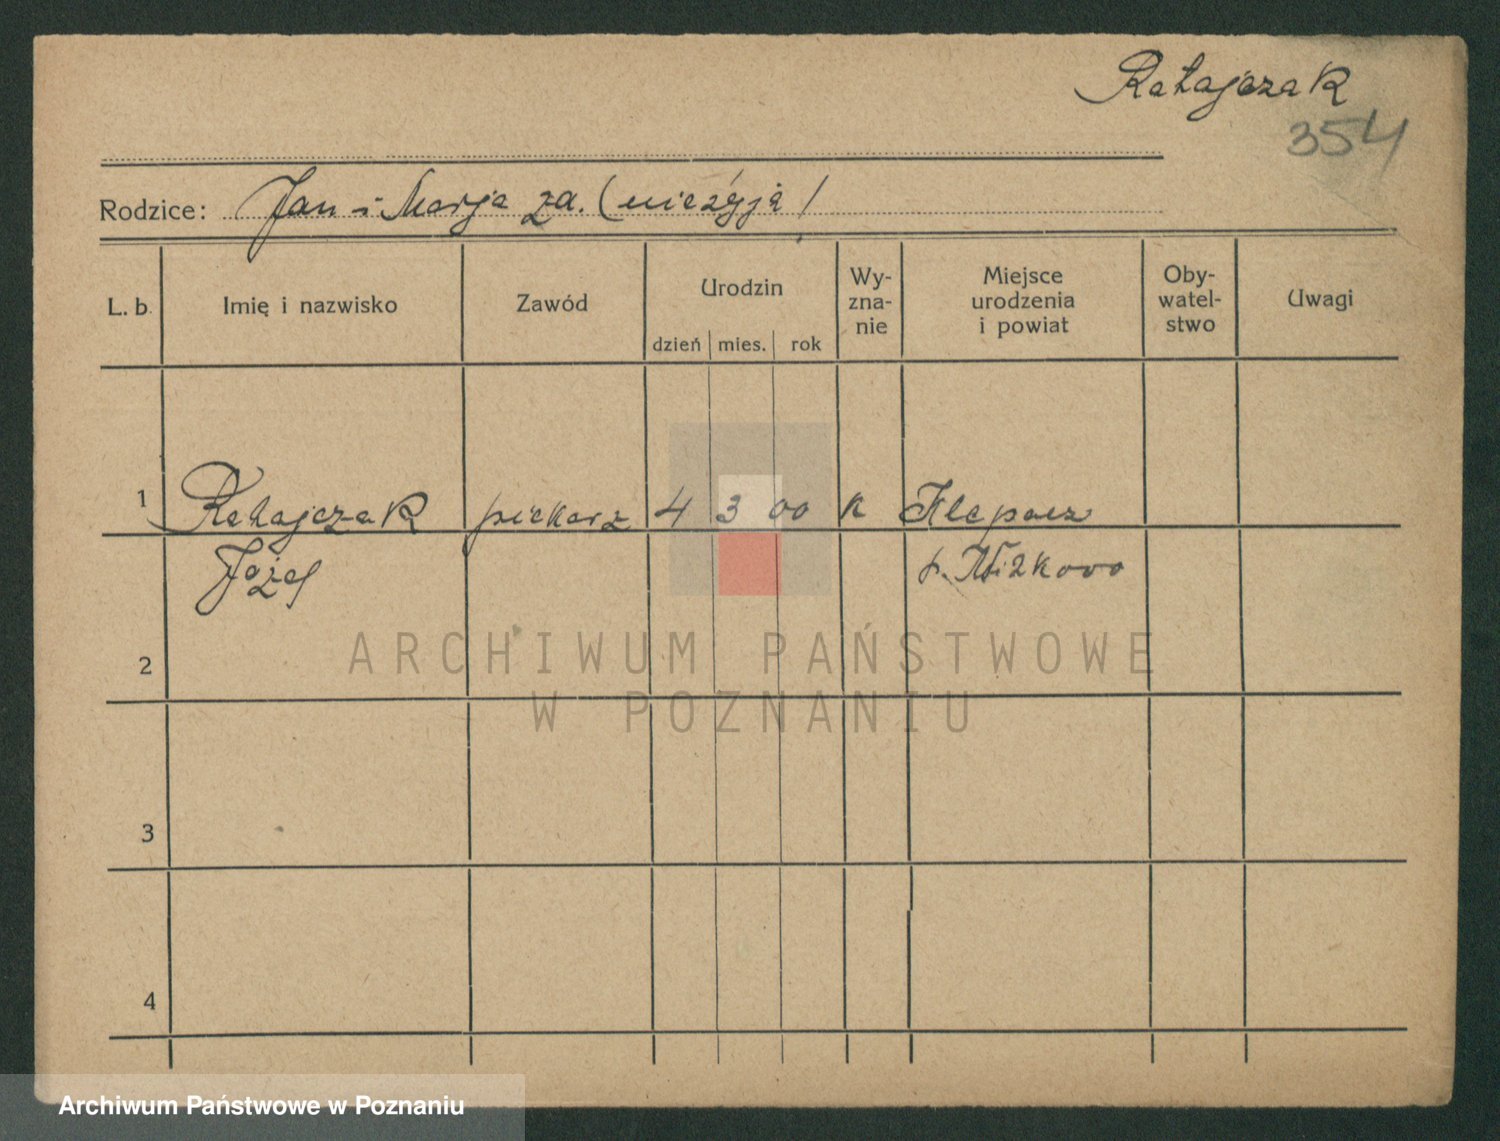 Ratajczak
354
Rodzice: Jan i Marja za. (nieżyją)
L. b. Imię i nazwisko Zawód Urodzin dzień mies. rok Wy-zna-nie Miejsce urodzenia i powiat Oby-watel-stwo Uwagi
1 Ratajczak piekarz 4 3 00 k
Józef p.
2
ARCHIWUM PAŃSTWOWE
W POZNANIU
3
4
Archiwum Państwowe w Poznaniu